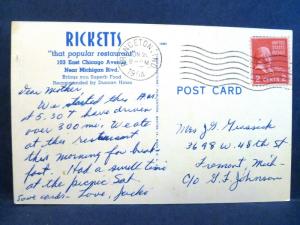 RICKETTS
"that popular restaurant"
103 East Chicago Avenue
Near Michigan Blvd.
Brings you Superb Food
Recommended by Duncan Hines
Dear Mother,
We started this A.M.
at 5:30 & have driven
over 300 mi. We ate
at this restaurant
this morning for break-
fast. Had a swell time
at the picnic Sat.
Save cards. Love, Jacks
PRINCETON, IND.
POST CARD
2 CENTS 2
Mrs J.G.
3698 W. 48th St
Fremont, Mich
C/o G.F. Johnson